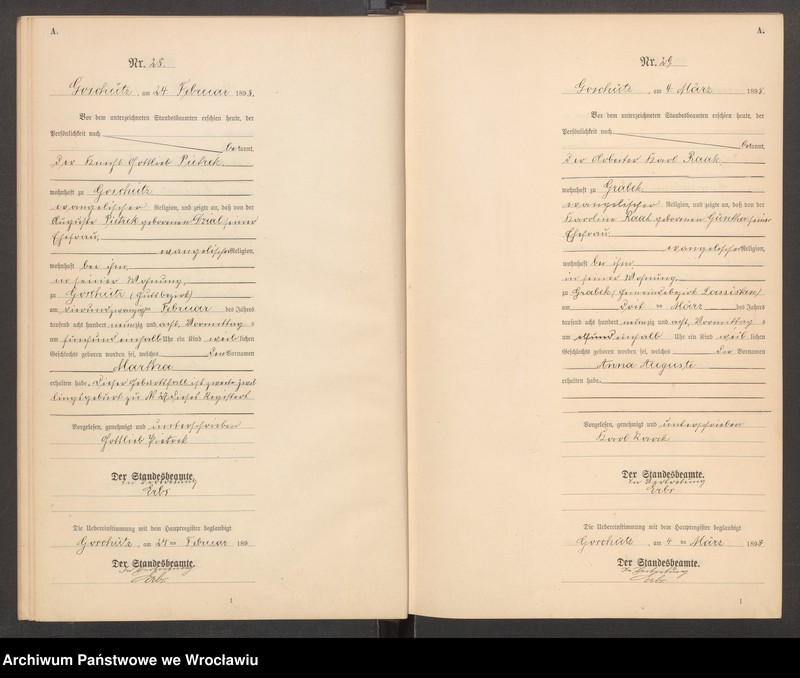 A.
Nr. 28.
Goschütz, am 24 Februar 1898.
Vor dem unterzeichneten Standesbeamten erschien heute, der
Persönlichkeit nach
bekannt,
der Knecht Gottlieb Pietrek.
wohnhaft zu Goschütz
evangelischer Religion, und zeigte an, daß von der
Auguste Pietrek geborenen Dzial seiner
Ehefrau,
evangelischer Religion,
wohnhaft bei ihm
in seiner Wohnung,
zu Goschütz (Gutsbezirk)
am vierundzwanzig= Februar des Jahres
tausend acht hundert neunzig und acht, Vormittag s
um fünfundeinhalb Uhr ein Kind weib lichen
Geschlechts geboren worden sei, welches den Vornamen
Martha
erhalten habe. Dieser Geburtsfall ist zweite Zwil
lingsgeburt zu N 27 dieses Registers
Vorgelesen, genehmigt und unterschrieben
Gottlieb Pietrek
Der Standesbeamte.
In Vertretung
Erbs
Die Uebereinstimmung mit dem Hauptregister beglaubigt
Goschütz, am 24 ten Februar 189
Der Standesbeamte.
In Vertretung
Erbs
1
A.
Nr. 29
Goschütz, am 4 März 1898.
Vor dem unterzeichneten Standesbeamten erschien heute, der
Persönlichkeit nach
bekannt,
der Arbeiter Karl Raak,
wohnhaft zu Grabek
evangelischer Religion, und zeigte an, daß von der
Karoline Raak geborenen Günther seiner
Ehefrau
evangelischer Religion,
wohnhaft bei ihm
in seiner Wohnung,
zu Grabek (Gemeindebezirk Lassisken)
am Drit = März des Jahres
tausend acht hundert neunzig und acht, Vormittag s
um elfundeinhalb Uhr ein Kind weib lichen
Geschlechts geboren worden sei, welches Der Vornamen
Anna Auguste
erhalten habe.
Vorgelesen, genehmigt und unterschrieben
Karl Raak
Der Standesbeamte.
In Vertretung
Erbs
Die Uebereinstimmung mit dem Hauptregister beglaubigt
Goschütz, am 4 ten März 1898.
Der Standesbeamte.
In Vertretung
Erbs
1
Archiwum Państwowe we Wrocławiu